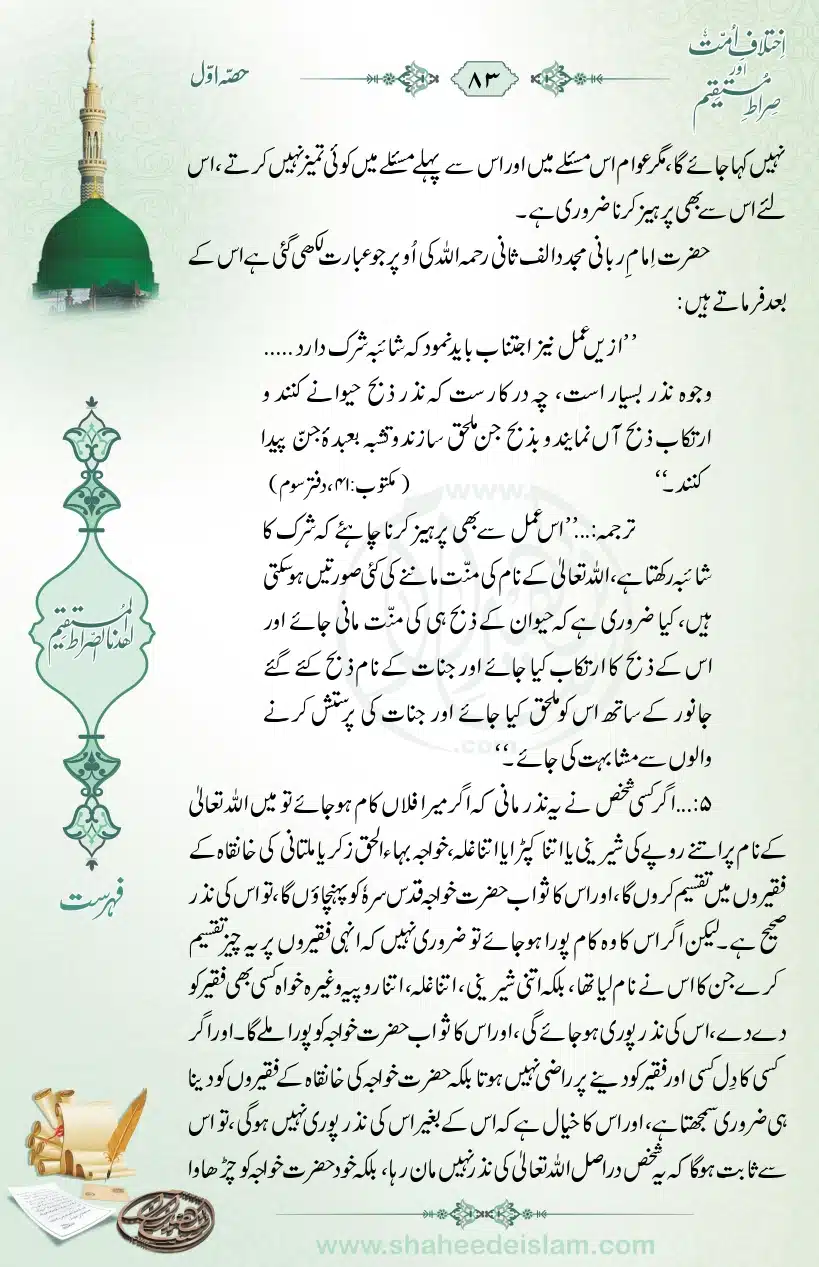 اِختلافِ اُمّت
اور
صِراطِ مُستقیم
۸۳
حصّہ اوّل
نہیں کہا جائے گا، مگر عوام اس مسئلے میں اور اس سے پہلے مسئلے میں کوئی تمیز نہیں کرتے، اس
لئے اس سے بھی پرہیز کرنا ضروری ہے۔
حضرت اِمامِ ربانی مجدد الف ثانی رحمہ اللہ کی اُوپر جو عبارت لکھی گئی ہے اس کے
بعد فرماتے ہیں:
’’ازیں عمل نیز اجتناب باید نمود کہ شائبہ شرک دارد .....
وجوہ نذر بسیار است، چہ درکار ست کہ نذر ذبح حیوانے کنند و
ارتکاب ذبح آں نمایند و بذبح جن ملحق سازند و تشبہ بعبدۂ جنّ پیدا
کنند۔‘‘ (مکتوب:۴۱، دفتر سوم)
ترجمہ:...’’اس عمل سے بھی پرہیز کرنا چاہئے کہ شرک کا
شائبہ رکھتا ہے، اللہ تعالیٰ کے نام کی منّت ماننے کی کئی صورتیں ہوسکتی
ہیں، کیا ضروری ہے کہ حیوان کے ذبح ہی کی منّت مانی جائے اور
اس کے ذبح کا ارتکاب کیا جائے اور جنات کے نام ذبح کئے گئے
جانور کے ساتھ اس کو ملحق کیا جائے اور جنات کی پرستش کرنے
والوں سے مشابہت کی جائے۔‘‘
۵:...اگر کسی شخص نے یہ نذر مانی کہ اگر میرا فلاں کام ہوجائے تو میں اللہ تعالیٰ
کے نام پر اتنے روپے کی شیرینی یا اتنا کپڑا یا اتنا غلہ، خواجہ بہاء الحق زکریا ملتانی کی خانقاہ کے
فقیروں میں تقسیم کروں گا، اور اس کا ثواب حضرت خواجہ قدس سرہٗ کو پہنچاؤں گا، تو اس کی نذر
صحیح ہے۔ لیکن اگر اس کا وہ کام پورا ہوجائے تو ضروری نہیں کہ انہی فقیروں پر یہ چیز تقسیم
کرے جن کا اس نے نام لیا تھا، بلکہ اتنی شیرینی، اتنا غلہ، اتنا روپیہ وغیرہ خواہ کسی بھی فقیر کو
دے دے، اس کی نذر پوری ہوجائے گی، اور اس کا ثواب حضرت خواجہ کو پورا ملے گا۔ اور اگر
کسی کا دِل کسی اور فقیر کو دینے پر راضی نہیں ہوتا بلکہ حضرت خواجہ کی خانقاہ کے فقیروں کو دینا
ہی ضروری سمجھتا ہے، اور اس کا خیال ہے کہ اس کے بغیر اس کی نذر پوری نہیں ہوگی، تو اس
سے ثابت ہوگا کہ یہ شخص دراصل اللہ تعالیٰ کی نذر نہیں مان رہا، بلکہ خود حضرت خواجہ کو چڑھاوا
اهدنا الصراط المستقيم
فہرست
www.shaheedeislam.com